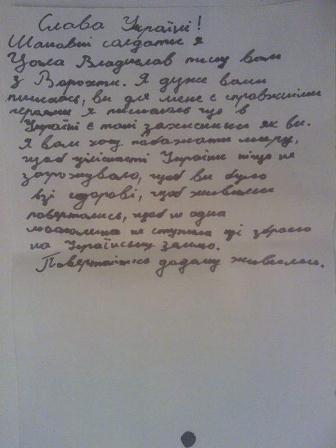 Слава Україні!
Шановні солдати я
Цола Владислав пишу вам
з Ворохти. Я дуже вами
пишаюсь, ви для мене є справжніми
героями я пишаюсь що в
Україні є такі захисники як ви.
Я вам хочу побажати миру,
щоб цілісності України ніщо не
загрожувало, щоб ви були
всі здорові, щоб живими
повертались, щоб ні одна
не ступила зі зброєю
на Українську землю.
Повертайтесь додому живими.